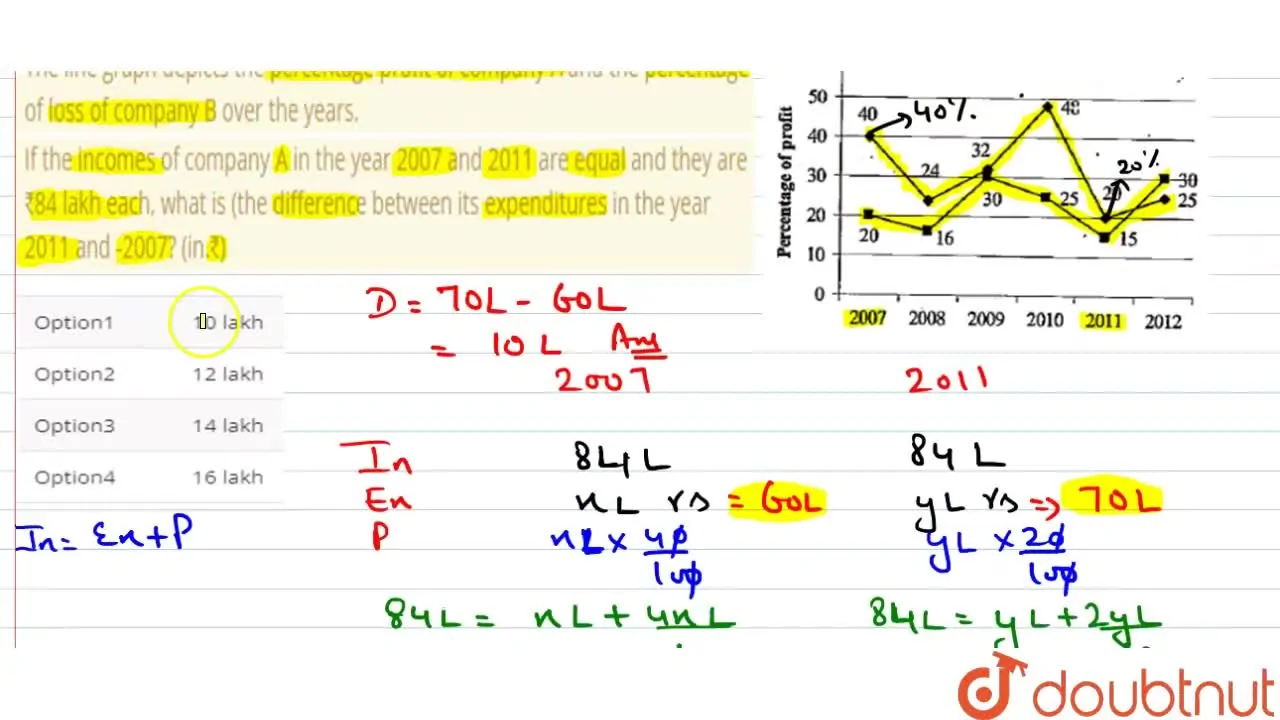 The line graph depicts the percentage profit of company A and the percentage
of loss of company B over the years.
If the incomes of company A in the year 2007 and 2011 are equal and they are
₹84 lakh each, what is (the difference between its expenditures in the year
2011 and -2007? (in ₹)
Option1 10 lakh
Option2 12 lakh
Option3 14 lakh
Option4 16 lakh
In = Ex + P
Percentage of profit
50
40
30
20
10
0
40 → 40%
24
32
48
20%
30
20
16
30
25
15
25
2007 2008 2009 2010 2011 2012
D = 70L - 60L
= 10 L Ans
2007 2011
In 84 L 84 L
Ex xL rs = 60L yL rs => 70L
P xL × 40/100 yL × 20/100
84L = xL + 4xL 84L = yL + 2yL
doubtnut